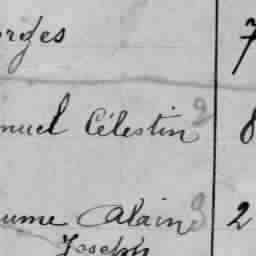 orges 7
nuel Célestin 2 8
ume Alain 3 2
Joseph